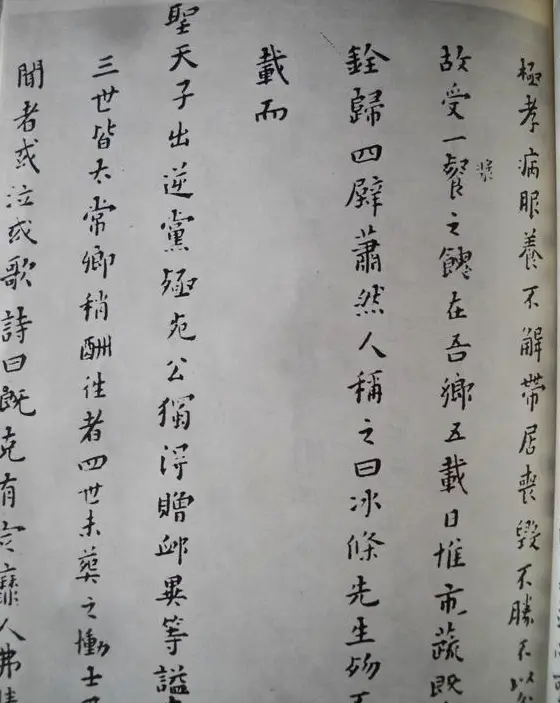 極孝病眼養不解帶居喪毀不勝不以
故受一餐之饋在吾鄉五載日惟市蔬既
銓歸四壁蕭然人稱之曰冰條先生歿不
載而
聖天子出逆黨殛死公獨淂贈卹異等謚
三世皆太常卿稍酬徃者四世未葬之慟士
聞者或泣或歌詩曰既克有定靡人弗勝